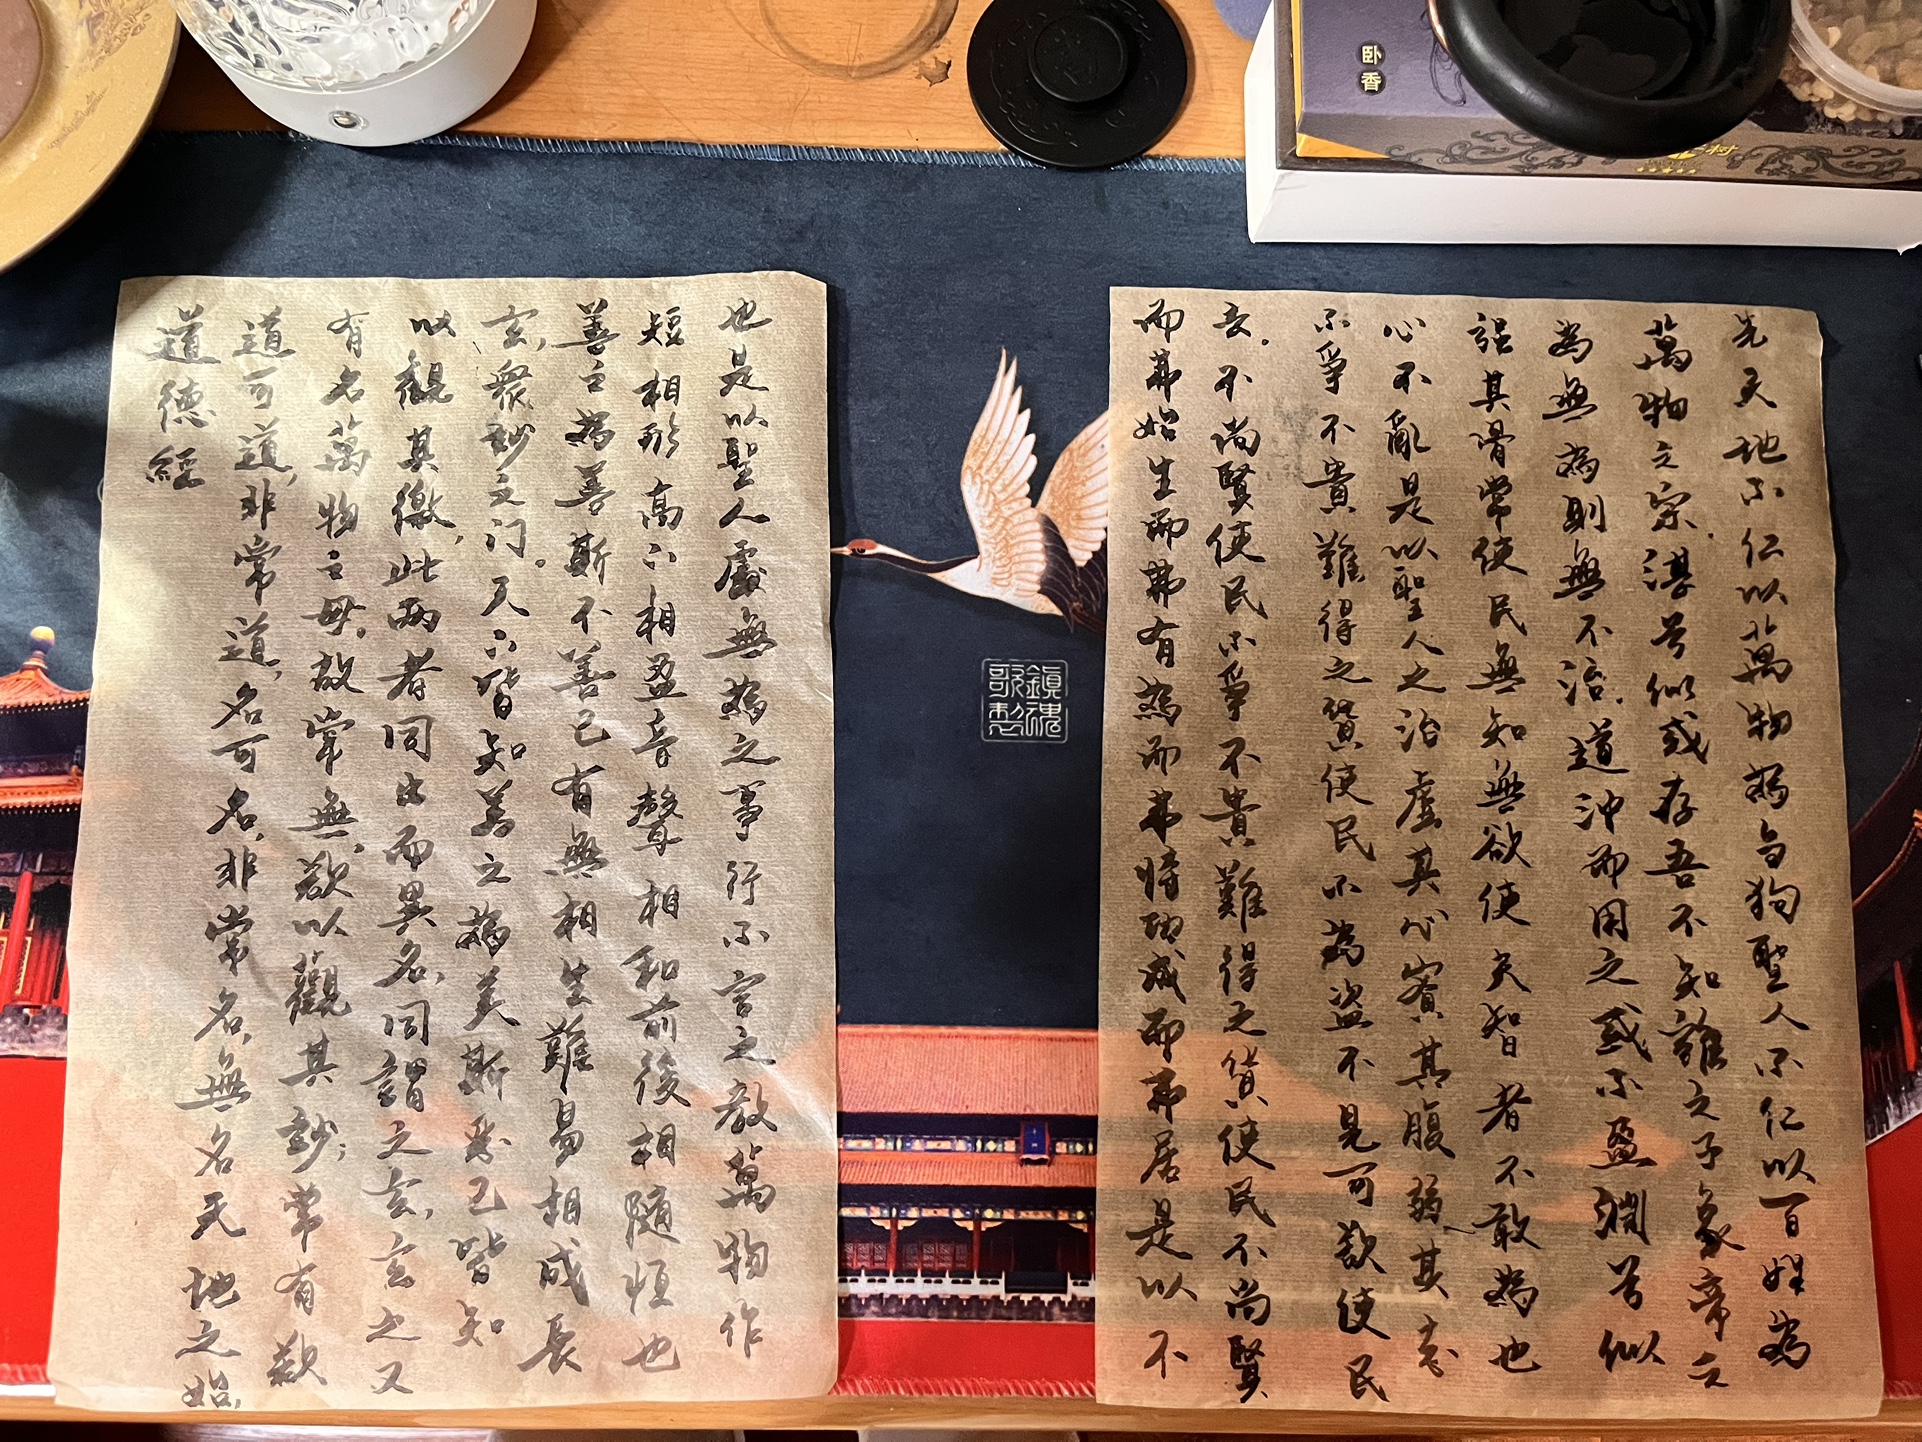 卧香
道德經
道可道,非常道,名可名,非常名,無名天地之始,
有名萬物之母,故常無,欲以觀其妙;常有欲
以觀其徼,此兩者同出而異名,同謂之玄,玄之又
玄,衆妙之门。天下皆知美之為美斯惡已皆知
善之為善斯不善已有無相生難易相成長
短相形高下相盈音聲相和前後相隨恒也
也是以聖人處無為之事行不言之教萬物作
而弗始生而弗有為而弗恃功成而弗居是以不
去.不尚賢使民不爭不貴難得之貨使民不尚賢
不爭不貴難得之貨使民不為盜不見可欲使民
心不亂是以聖人之治虛其心實其腹弱其志
强其骨常使民無知無欲使夫智者不敢為也
為無為則無不治.道沖而用之或不盈淵兮似
萬物之宗.湛兮似或存吾不知誰之子象帝之
先天地不仁以萬物為芻狗聖人不仁以百姓為
鎮魂
歌製